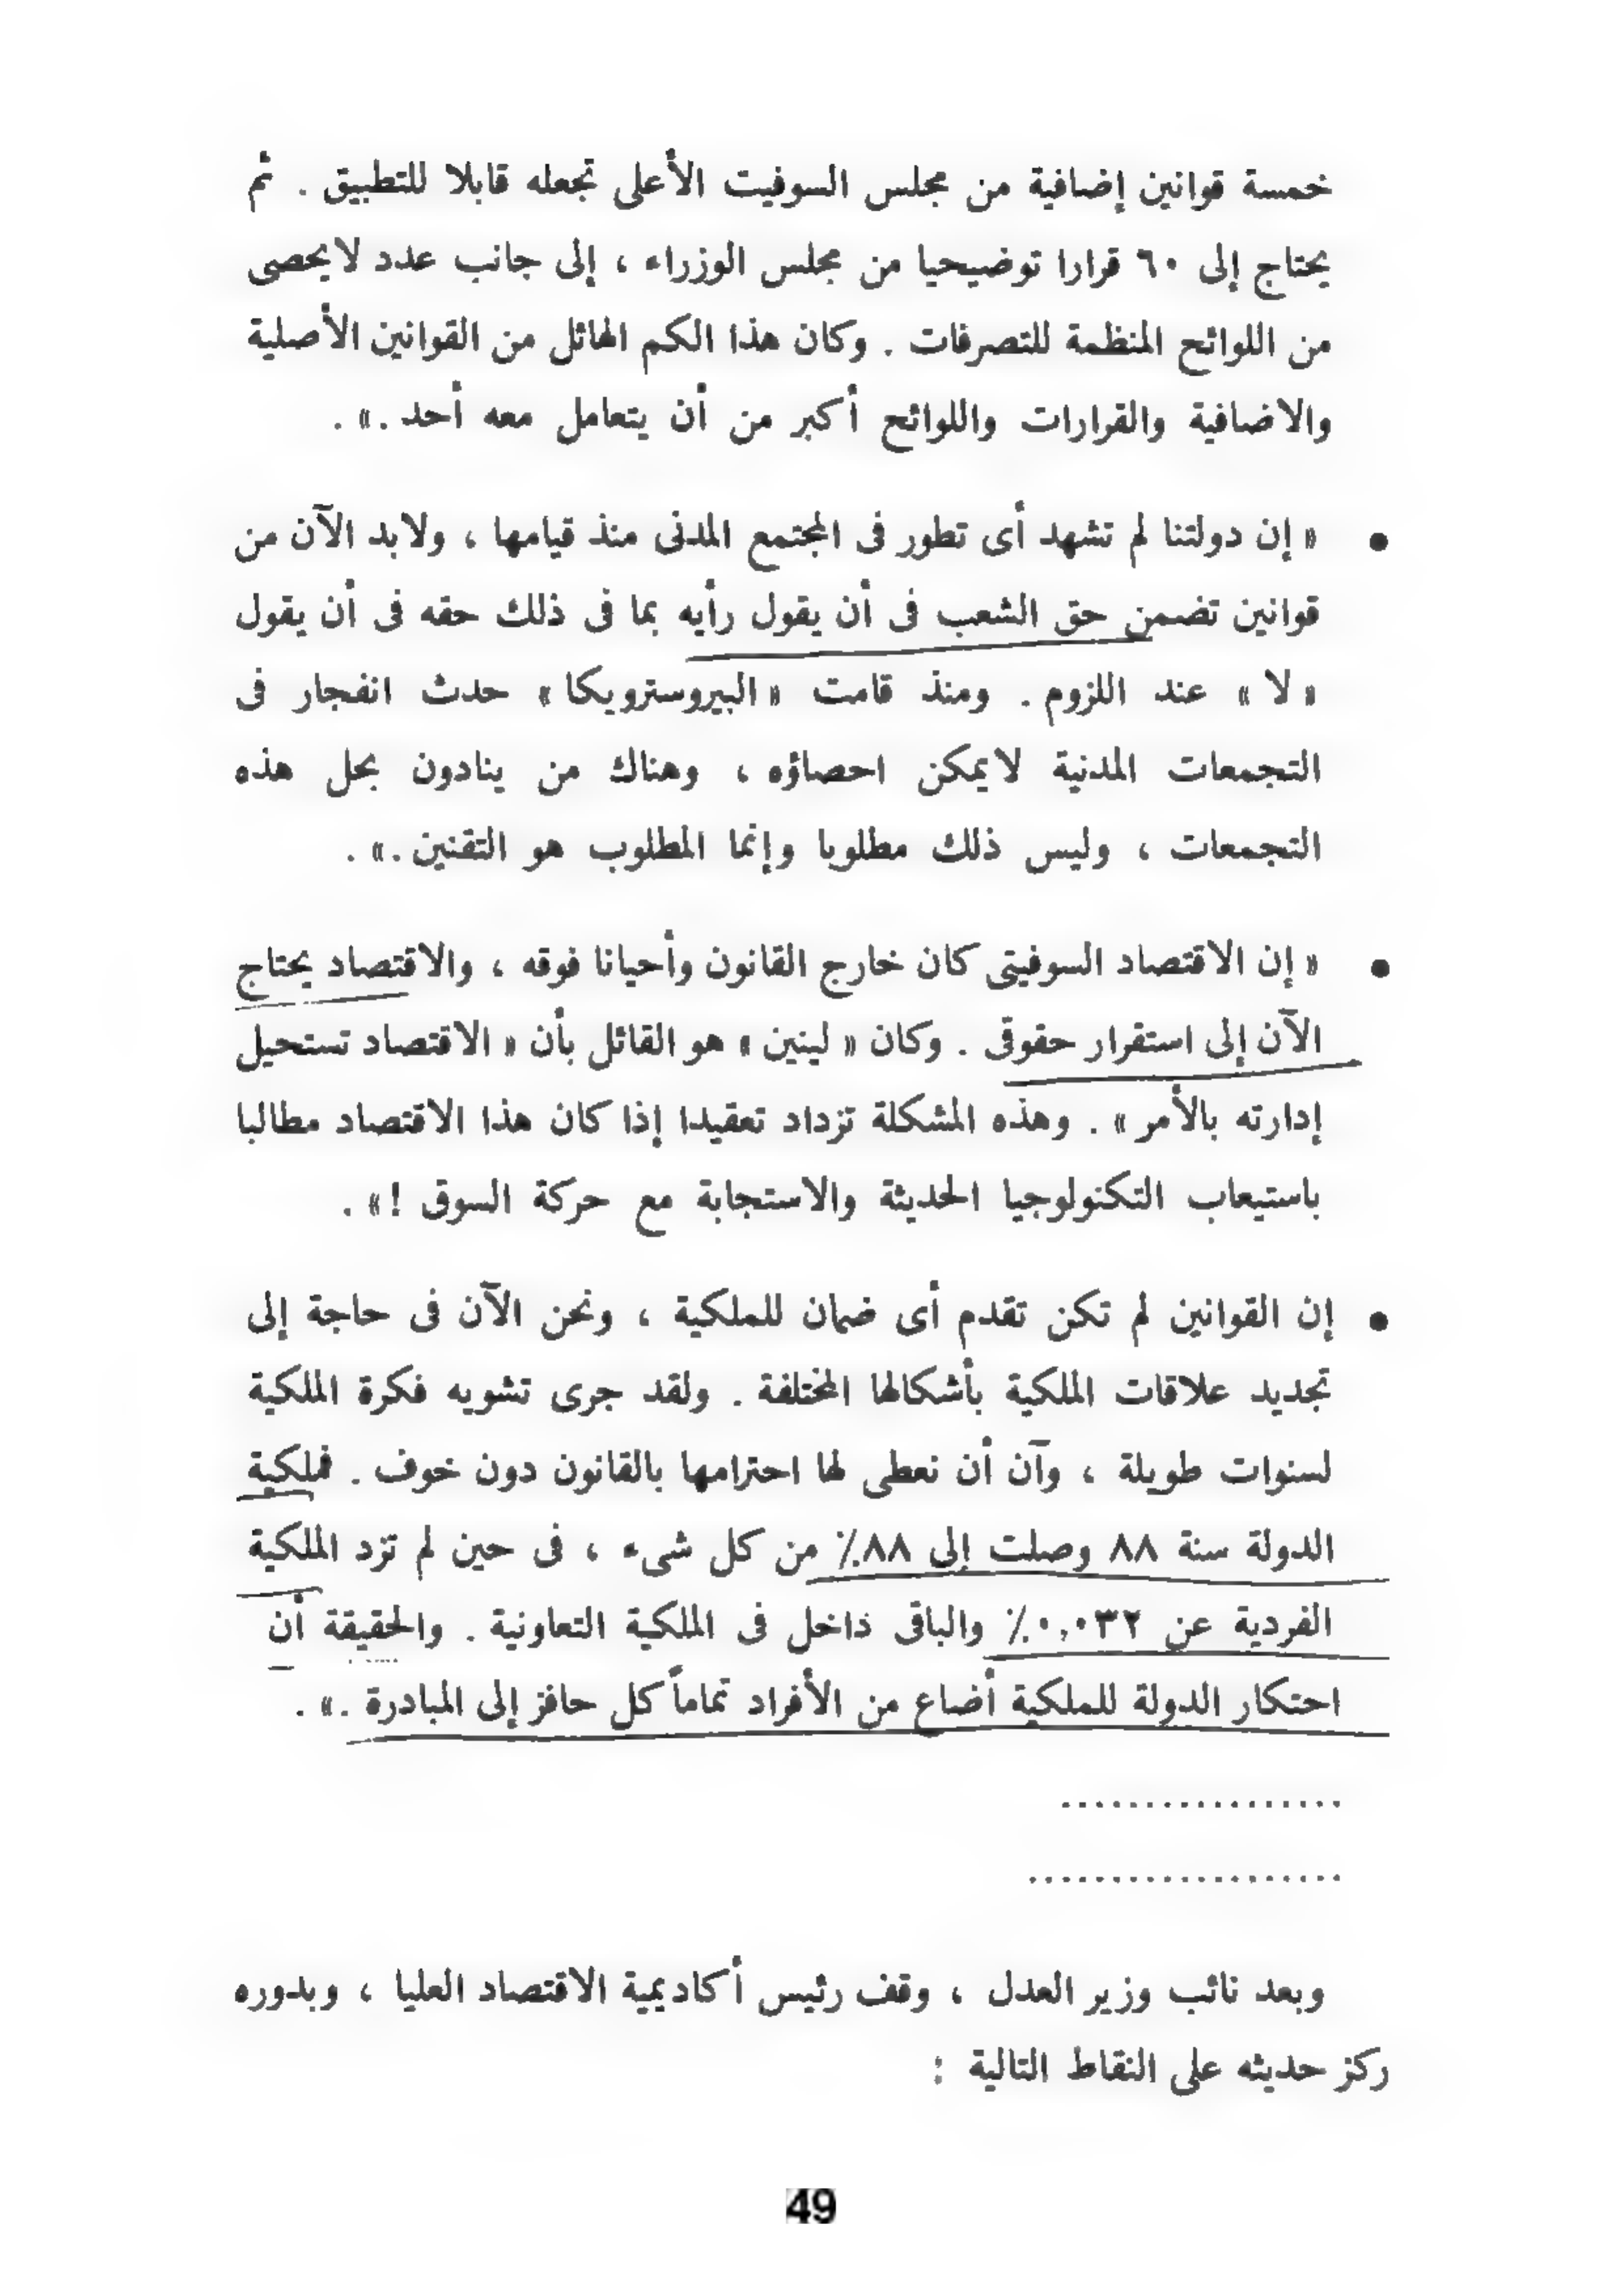 خمسة قوانين إضافية من مجلس السوفيت الأعلى تجعله قابلا للتطبيق . ثم
يحتاج إلى ٦٠ قرارا توضيحيا من مجلس الوزراء ، إلى جانب عدد لايحصى
من اللوائح المنظمة للتصرفات . وكان هذا الكم الهائل من القوانين الأصلية
والاضافية والقرارات واللوائح أكبر من أن يتعامل معه أحد .» .
● « إن دولتنا لم تشهد أى تطور فى المجتمع المدنى منذ قيامها ، ولابد الآن من
قوانين تضمن حق الشعب فى أن يقول رأيه بما فى ذلك حقه فى أن يقول
« لا » عند اللزوم . ومنذ قامت « البيروسترويكا » حدث انفجار فى
التجمعات المدنية لايمكن احصاؤه ، وهناك من ينادون بحل هذه
التجمعات ، وليس ذلك مطلوبا وإنما المطلوب هو التقنين .» .
● « إن الاقتصاد السوفيتى كان خارج القانون وأحيانا فوقه ، والاقتصاد يحتاج
الآن إلى استقرار حقوقى . وكان « لينين » هو القائل بأن « الاقتصاد تستحيل
إدارته بالأمر » . وهذه المشكلة تزداد تعقيدا إذا كان هذا الاقتصاد مطالبا
باستيعاب التكنولوجيا الحديثة والاستجابة مع حركة السوق !» .
● إن القوانين لم تكن تقدم أى ضمان للملكية ، ونحن الآن فى حاجة إلى
تجديد علاقات الملكية بأشكالها المختلفة . ولقد جرى تشويه فكرة الملكية
لسنوات طويلة ، وآن أن نعطى لها احترامها بالقانون دون خوف . فملكية
الدولة سنة ٨٨ وصلت إلى ٨٨٪ من كل شىء ، فى حين لم تزد الملكية
الفردية عن ٠,٠٣٢٪ والباقى داخل فى الملكية التعاونية . والحقيقة أن
احتكار الدولة للملكية أضاع من الأفراد تماماً كل حافز إلى المبادرة .» .
.................
...................
وبعد نائب وزير العدل ، وقف رئيس أكاديمية الاقتصاد العليا ، وبدوره
ركز حديثه على النقاط التالية :
49